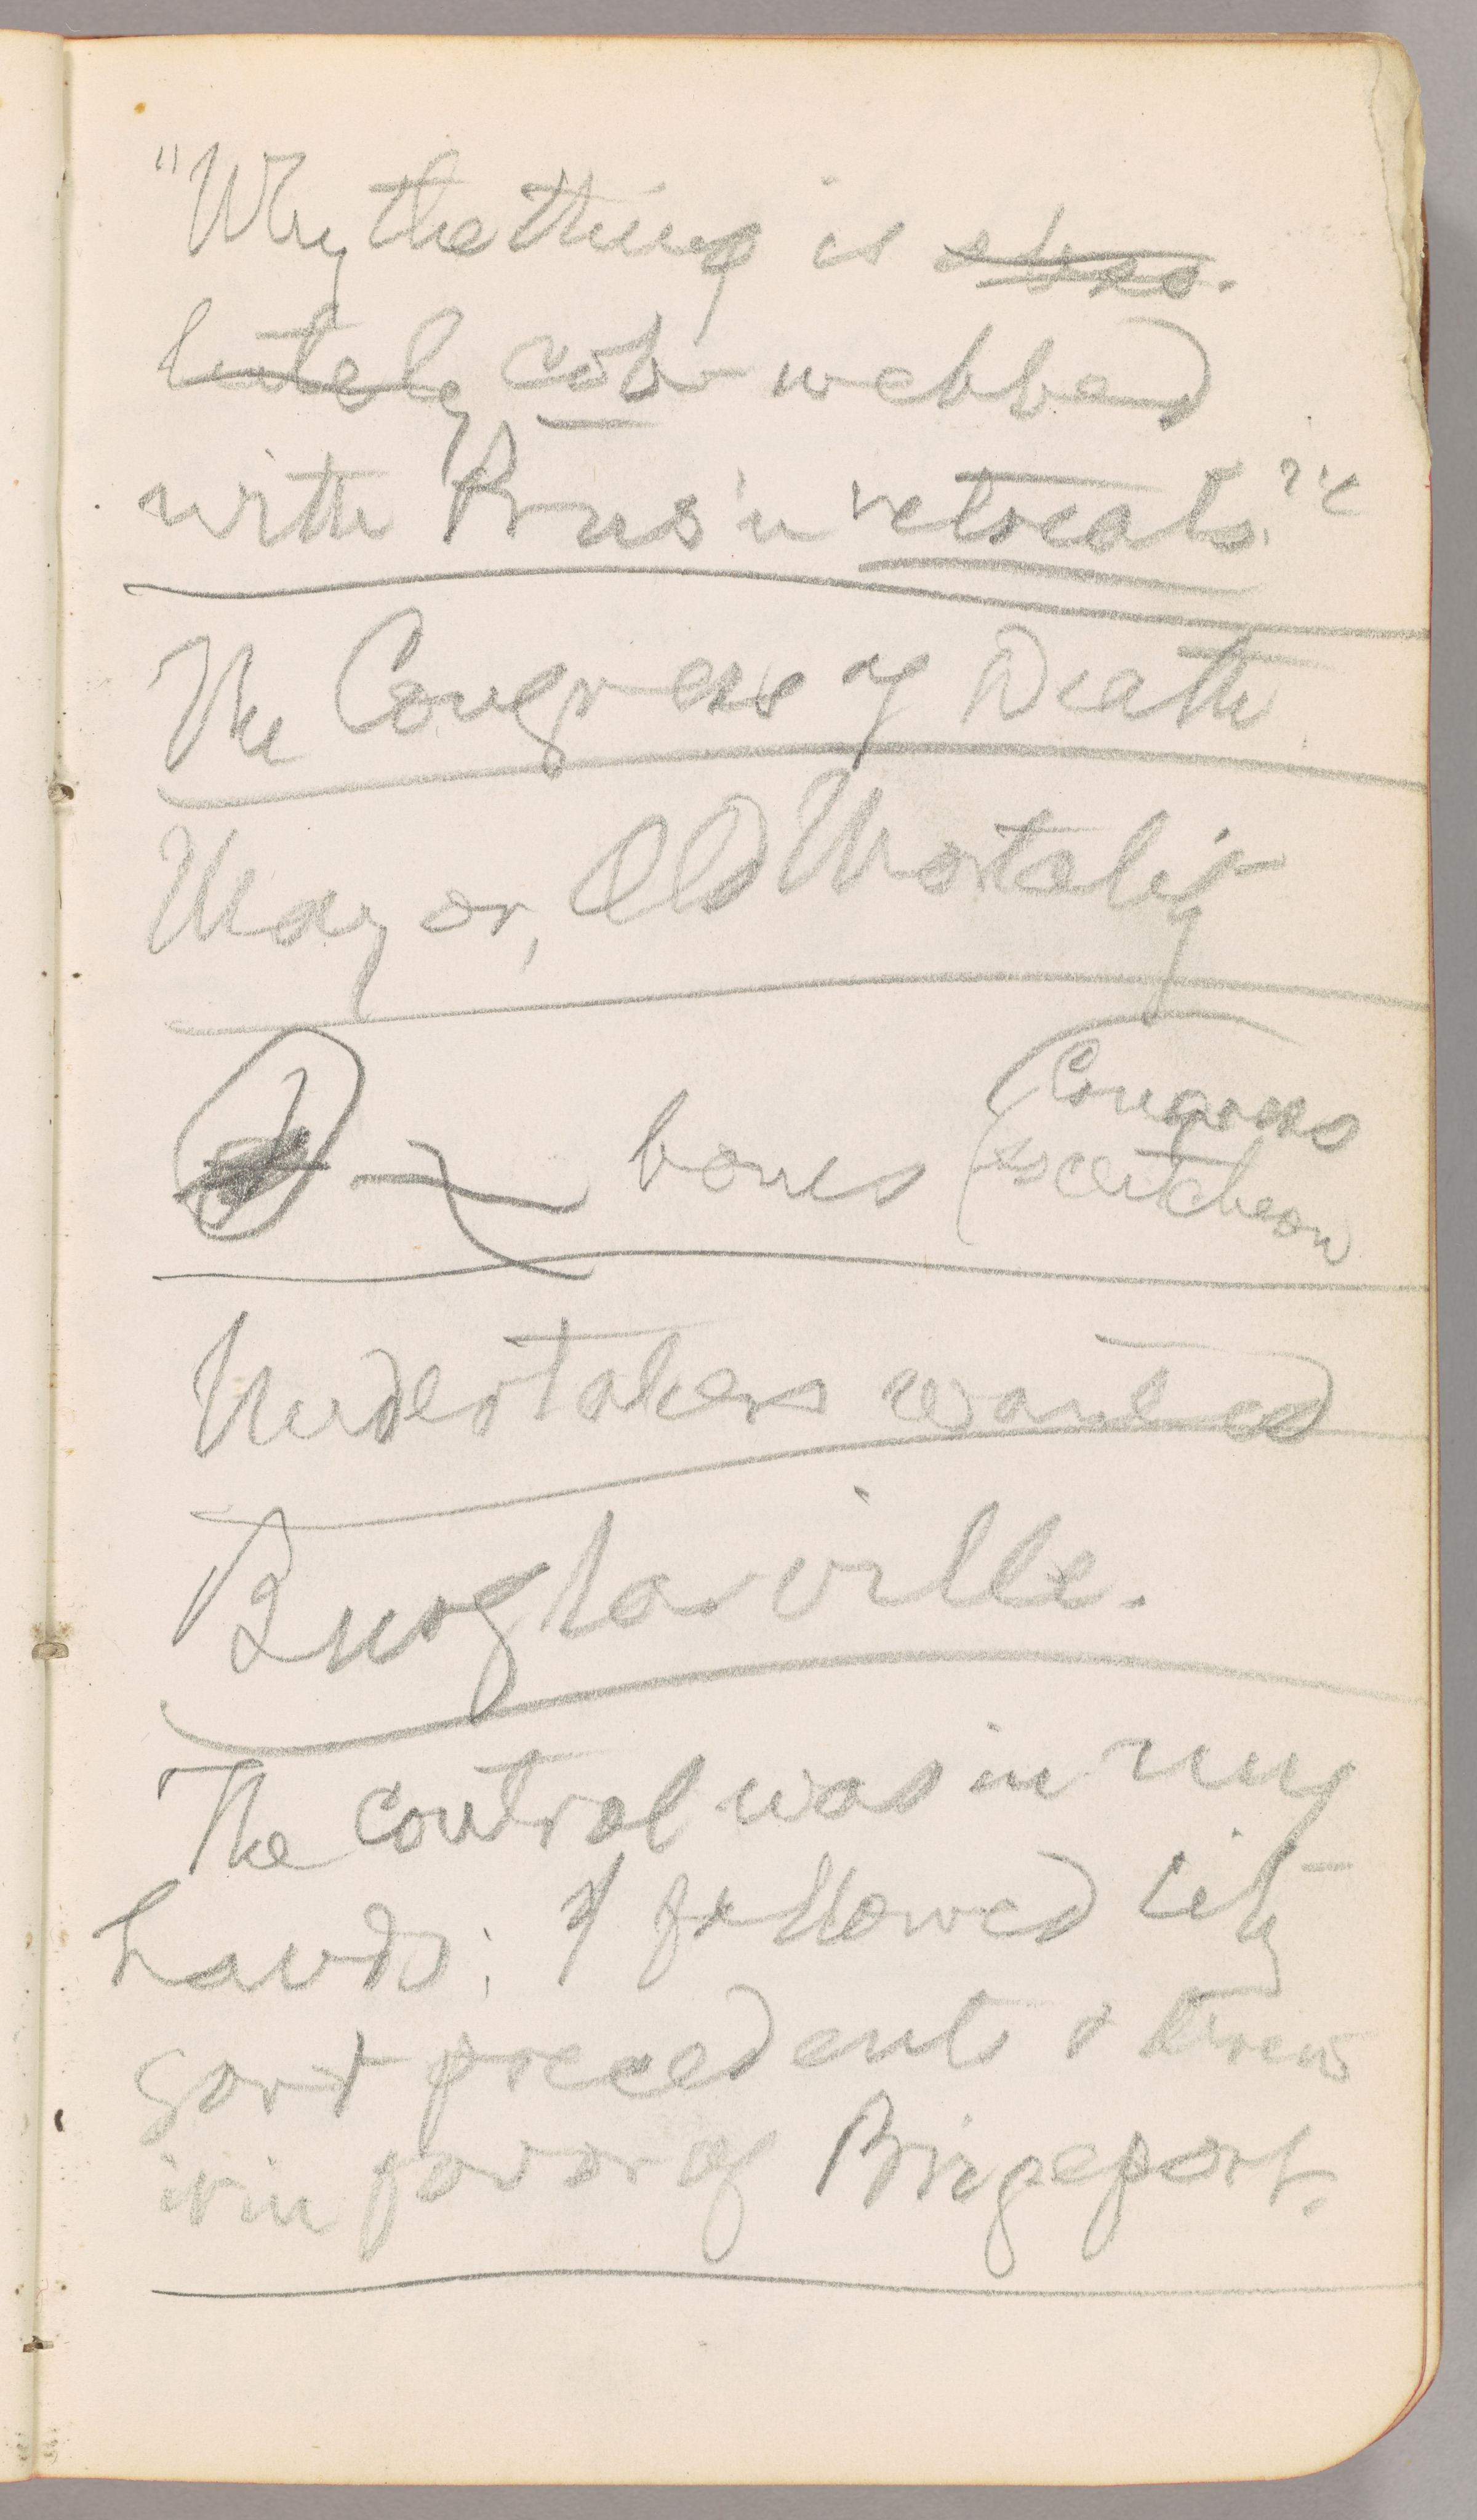 "Why the thing is abso-
lutely cob-webbed
with Prus'n retreats."
The Congress of Death
Mayor, Old Mortality
bones (Congress
escutcheon
Undertakers wanted
Burglarville.
The control was in my
hands; I followed city
gov't precedents & threw
it in favor of Bridgeport.